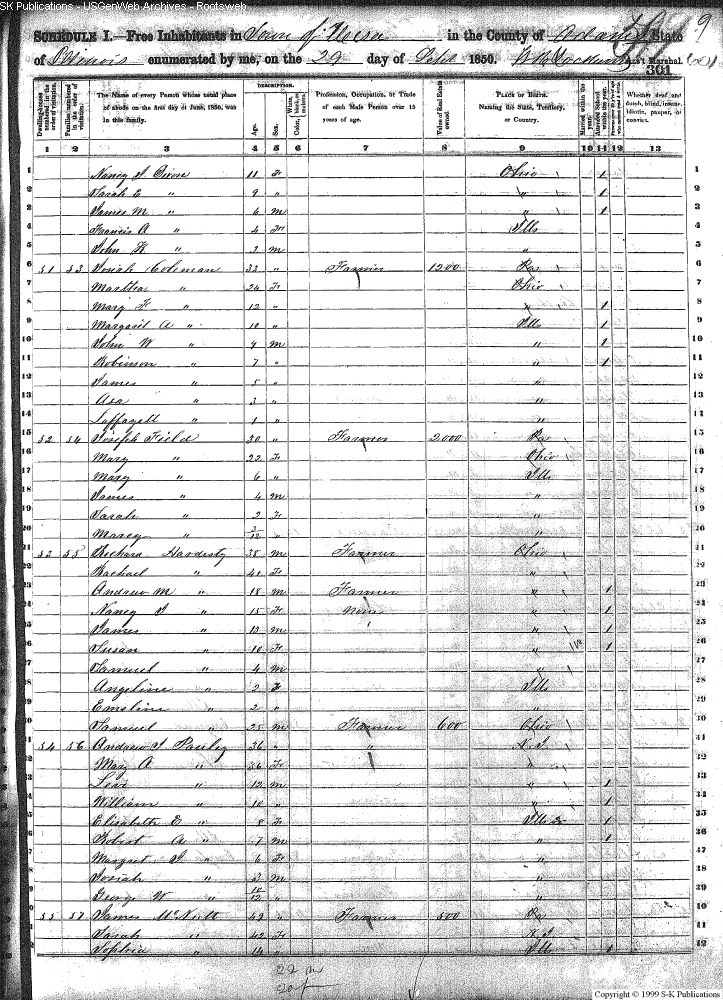 SK Publications - USGenWeb Archives - Rootsweb
SCHEDULE I.—Free Inhabitants in Town of Ursa in the County of Adams State
of Illinois enumerated by me, on the 29 day of 1850. Ass't Marshal.
301
Dwelling-houses numbered in the order of visitation.
Families numbered in the order of visitation.
The Name of every Person whose usual place of abode on the first day of June, 1850, was in this family.
DESCRIPTION.
Age.
Sex.
Color.
Profession, Occupation, or Trade of each Male Person over 15 years of age.
Value of Real Estate owned.
PLACE OF BIRTH.
Naming the State, Territory, or Country.
Married within the year.
Attended School within the year.
Whether deaf and dumb, blind, insane, idiotic, pauper, or convict.
1 2 3 4 5 6 7 8 9 10 11 12 13
1 Nancy J 11 F Ohio 1 1
2 Sarah E " 9 " " 1 2
3 James M " 6 m " 1 3
4 Francis A " 4 F Ills 4
5 John " 3 m " 5
6 51 53 Josiah Coleman 33 " Farmer 1200 Pa 6
7 Martha " 24 F Ohio 7
8 Mary F " 12 " " 1 8
9 Margaret A " 10 " Ills 1 9
10 John W " 9 m " 1 10
11 Robinson " 7 " " 1 11
12 James " 5 " " 12
13 Asa " 3 " " 13
14 Laffayett " 1 " " 14
15 52 54 Joseph Field 30 " Farmer 2000 Pa 15
16 Mary " 22 F Ohio 16
17 Mary " 6 " Ills 17
18 James " 4 m " 18
19 Sarah " 2 F " 19
20 " 3/12 " " 20
21 53 55 Richard Hardesty 38 m Farmer Ohio 21
22 Rachael " 41 F " 22
23 Andrew M " 18 m Farmer " 1 23
24 Nancy J " 15 F None " 1 24
25 James " 13 m " 1 25
26 Susan " 10 F " 1 26
27 Samuel " 4 m " 27
28 Angeline " 2 F Ills 28
29 Emeline " 2 " " 29
30 Samuel " 25 m Farmer 600 Ohio 30
31 54 56 Andrew J Pauley 36 " " N J 31
32 Mary A " 36 F " 32
33 Levi " 12 m " 1 33
34 William " 10 " " 1 34
35 Elisabeth E " 8 F Ills 1 35
36 Robert A " 7 m " 1 36
37 Margret J " 6 F " 37
38 Josiah " 3 m " 38
39 George W " 10/12 " " 39
40 55 57 James McNutt 49 " Farmer 500 Pa 40
41 Sarah " 42 F 41
42 Sophria " 14 " Ills 1 42
22 m
20 f
Copyright © 1999 S-K Publications